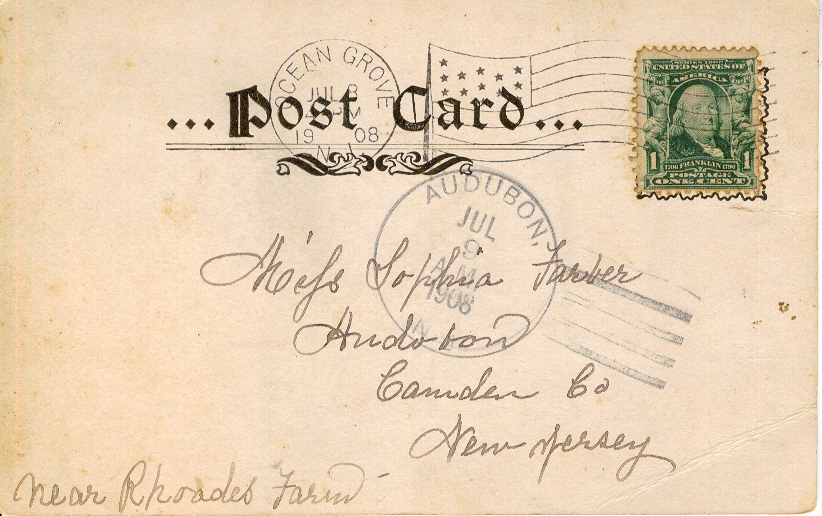 OCEAN GROVE
JUL 8
PM
19 08
N.J.
...Post Card...
SERIES 1902
UNITED STATES OF
AMERICA
1 1706 FRANKLIN 1790 1
POSTAGE
ONE CENT
AUDUBON,
JUL
9
A.M.
1908
N
Miss Sophia Farber
Audobon
Camden Co
New Jersey
near Rhoades Farm